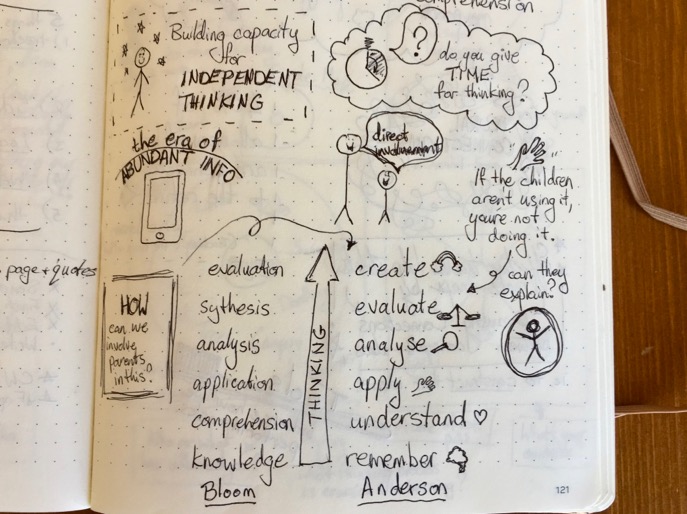 comprehension
Building capacity
for
INDEPENDENT
THINKING
?
do you give
TIME
for thinking?
the era of
ABUNDANT INFO
direct
involvement
If the children
aren't using it,
you're not
doing it.
can they
explain?
page + quotes
HOW
can we
involve
parents
in this?
evaluation
sythesis
analysis
application
comprehension
knowledge
Bloom
THINKING
create
evaluate
analyse
apply
understand
remember
Anderson
121